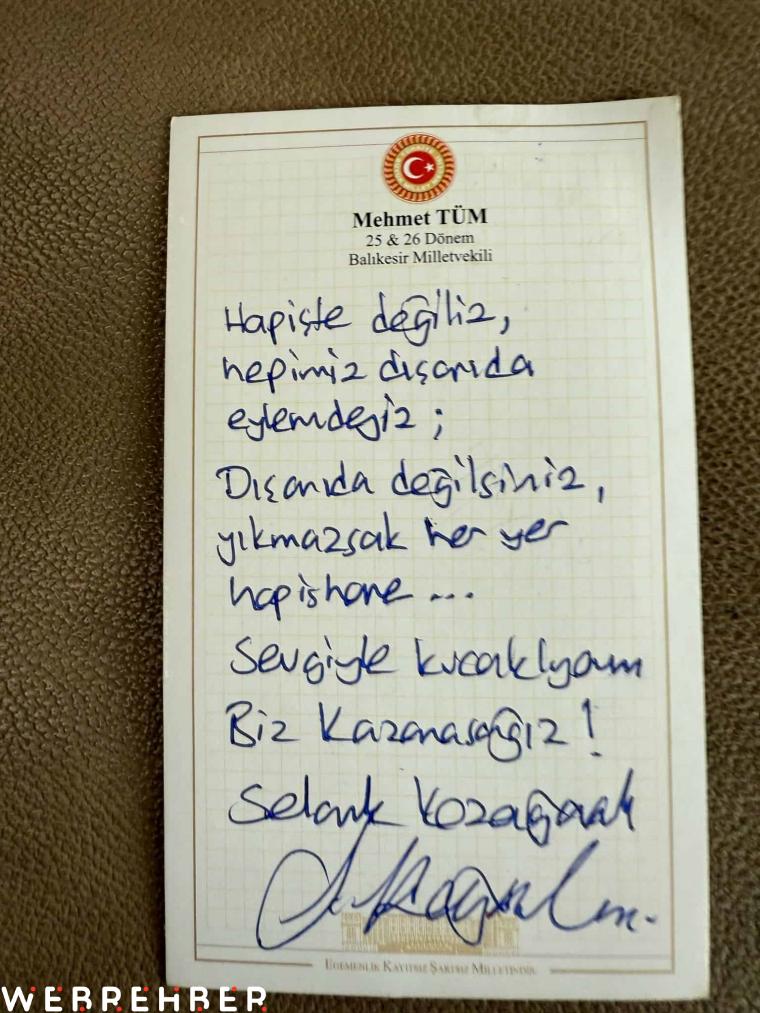 Mehmet TÜM
25 & 26 Dönem
Balıkesir Milletvekili
Hapiste değiliz,
hepimiz dışarıda
eylemdeyiz;
Dışarıda değilsiniz,
yıkmazsak her yer
hapishane...
Sevgiyle kucaklıyorum
Biz Kazanacağız!
Selçuk Kozağaçlı
EGEMENLİK KAYITSIZ ŞARTSIZ MİLLETİNDİR
WEBREHBER